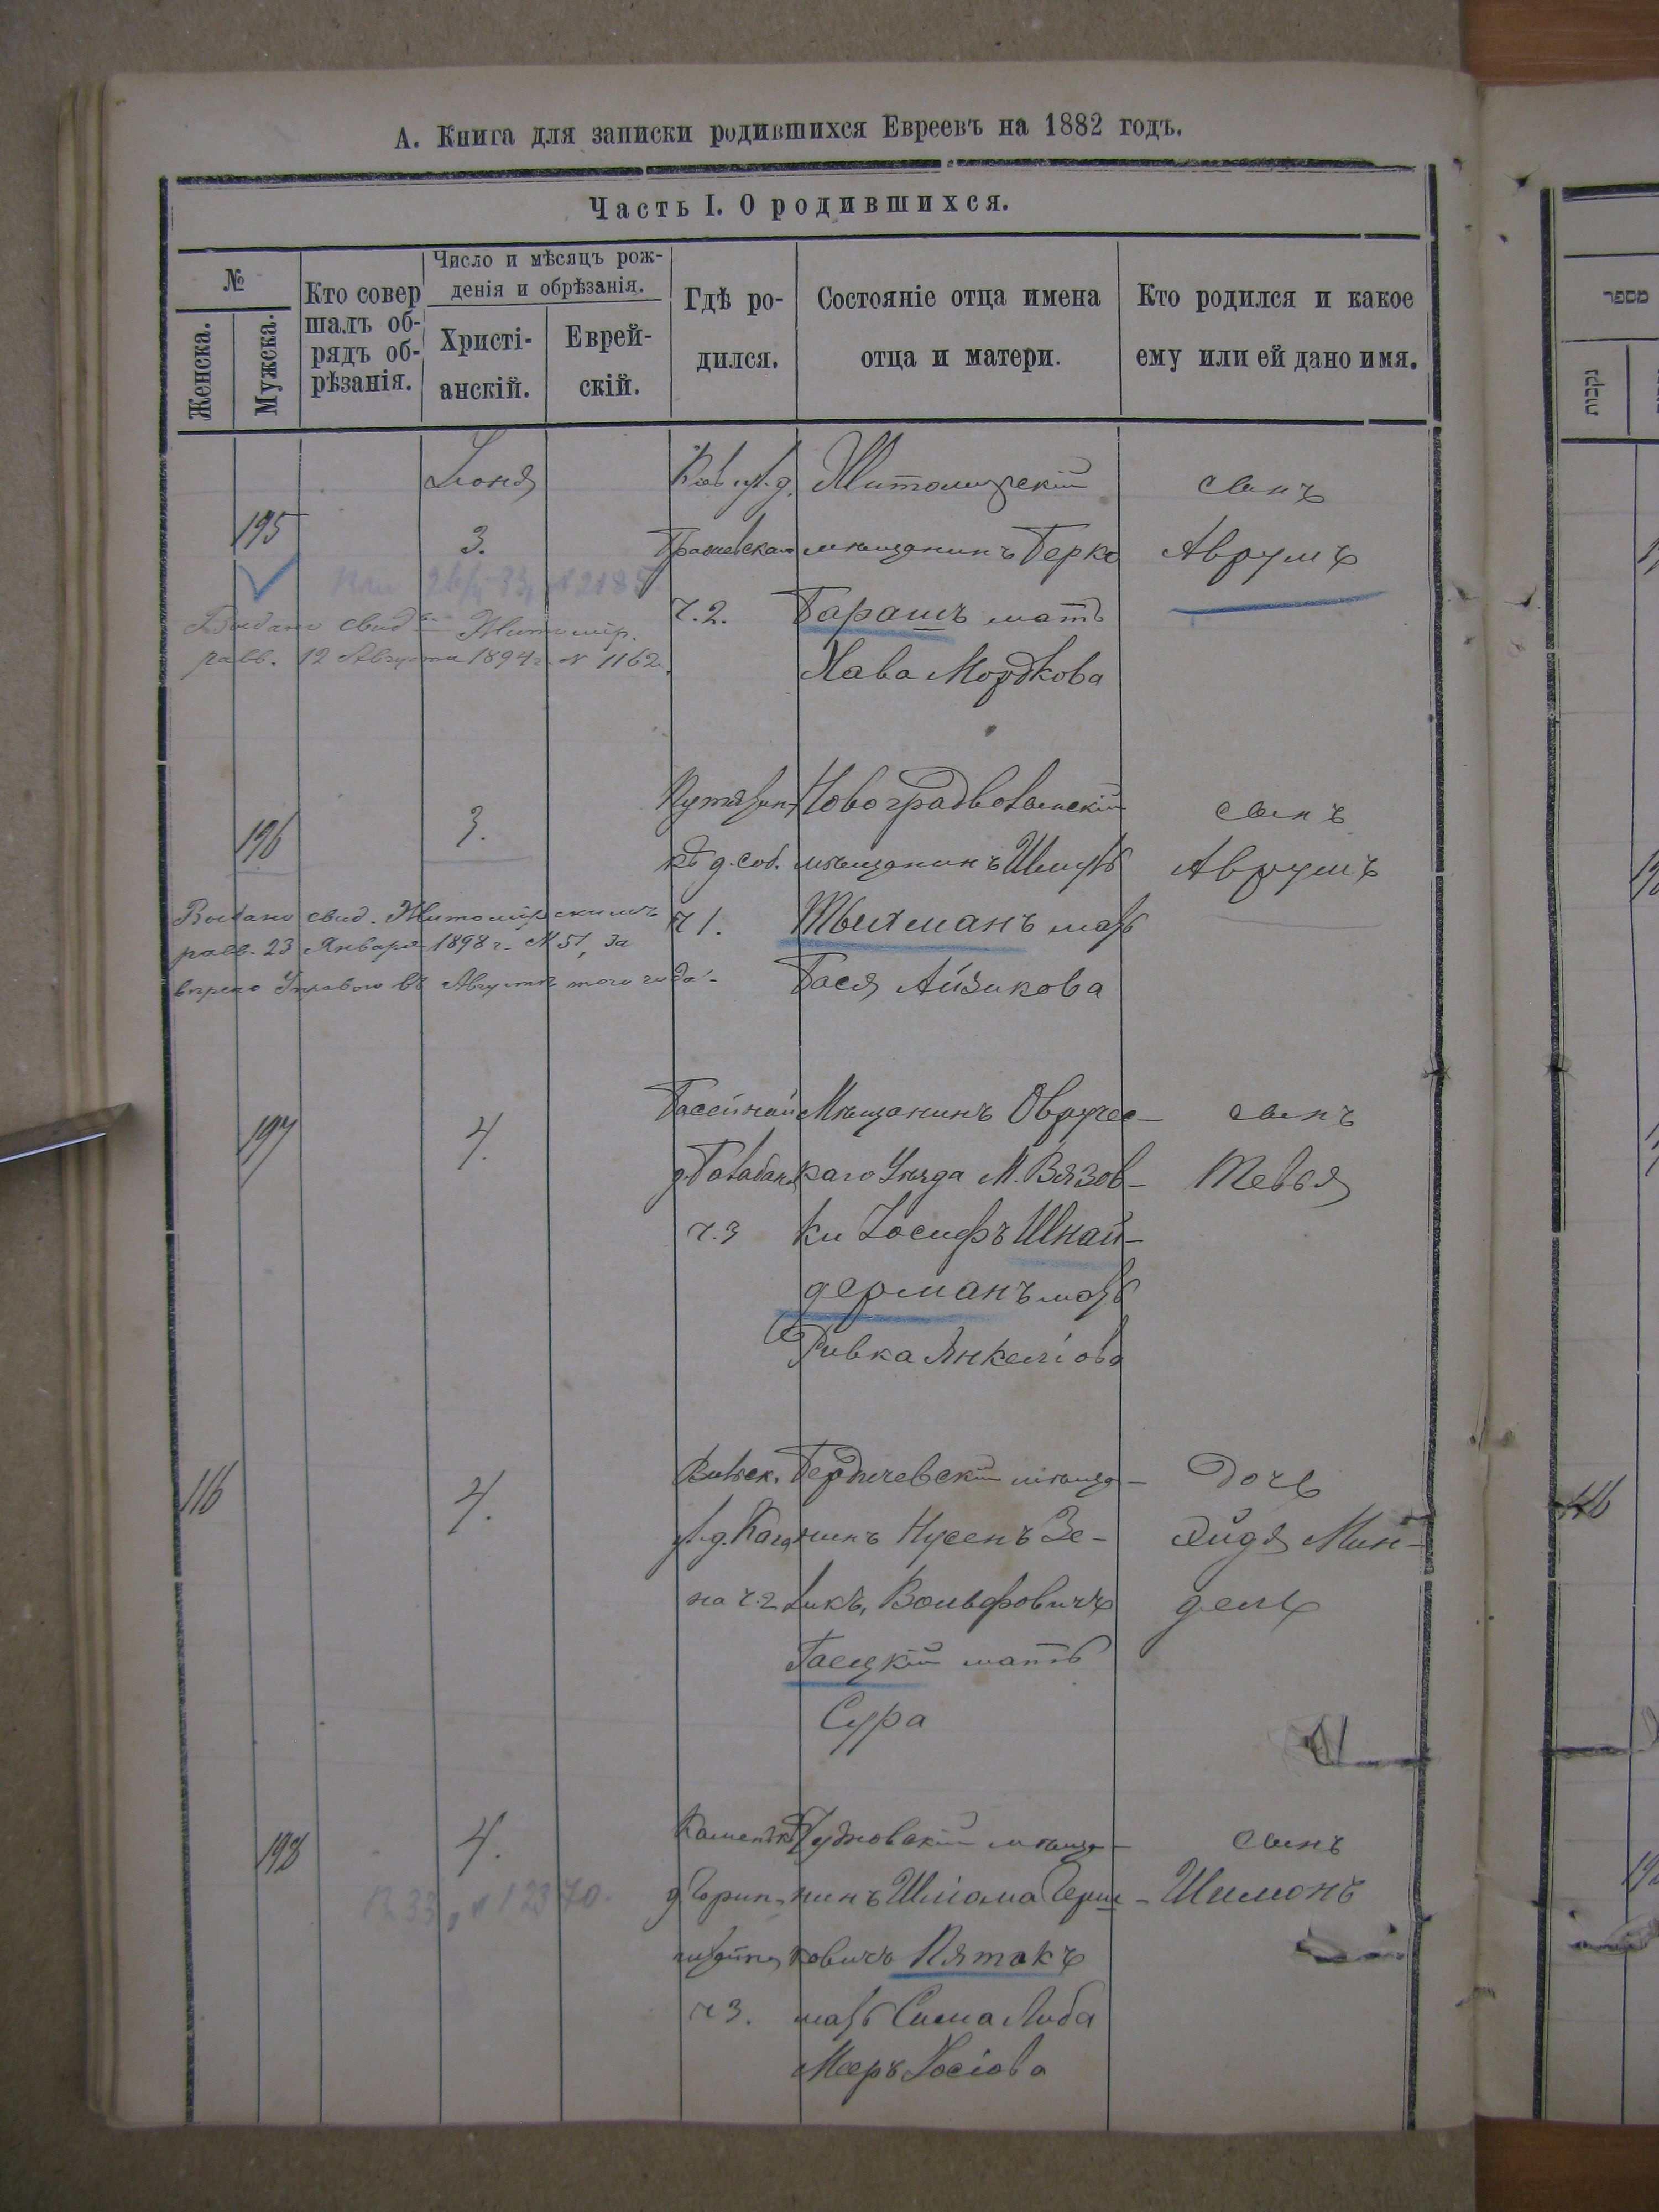 А. Книга для записки родившихся Евреевъ на 1882 годъ.
Часть I. О родившихся.
№
Женска.
Мужска.
Кто совер
шалъ об-
рядъ об-
рѣзанія.
Число и мѣсяцъ рож-
денія и обрѣзанія.
Христі-
анскій.
Еврей-
скій.
Гдѣ ро-
дился.
Состояніе отца имена
отца и матери.
Кто родился и какое
ему или ей дано имя.
195
Іюня
3.
ч. 2.
Житомирскій
мѣщанинъ Берко
Барашъ мать
Хава Мордкова
сынъ
Аврумъ
Выдано свид. Житомір.
равв. 12 Августа 1894 г. № 1162.
196
3.
д. соб.
ч 1.
Новоградволынскій
мѣщанинъ Шмуль
Тыхманъ мать
Бася Айзикова
сынъ
Аврумъ
Выдано свид. Житомірскимъ
равв. 23 Января 1898 г. № 51, за
Управою въ Августѣ того года.
197
4.
ч. 3
Мѣщанинъ Овручс-
каго Уѣзда М. Вязов-
ки Іосифъ Шнай-
дерманъ мать
Ривка Янкеліова
сынъ
Тевья
116
4.
Вильск.
ул. д. Кага
на ч. 2
Бердичевскій мѣща-
нинъ Нусенъ Зе-
ликъ, Вольфовичъ
мать
Сура
Дочь
Эйдя Мин-
дель
198
4.
ч 3.
Чудновскій мѣща-
нинъ Шліома Герш-
ковичъ Пятакъ
мать Сима Либа
Мееръ Іосіова
сынъ
Шимонъ
מספר
נקבות
116